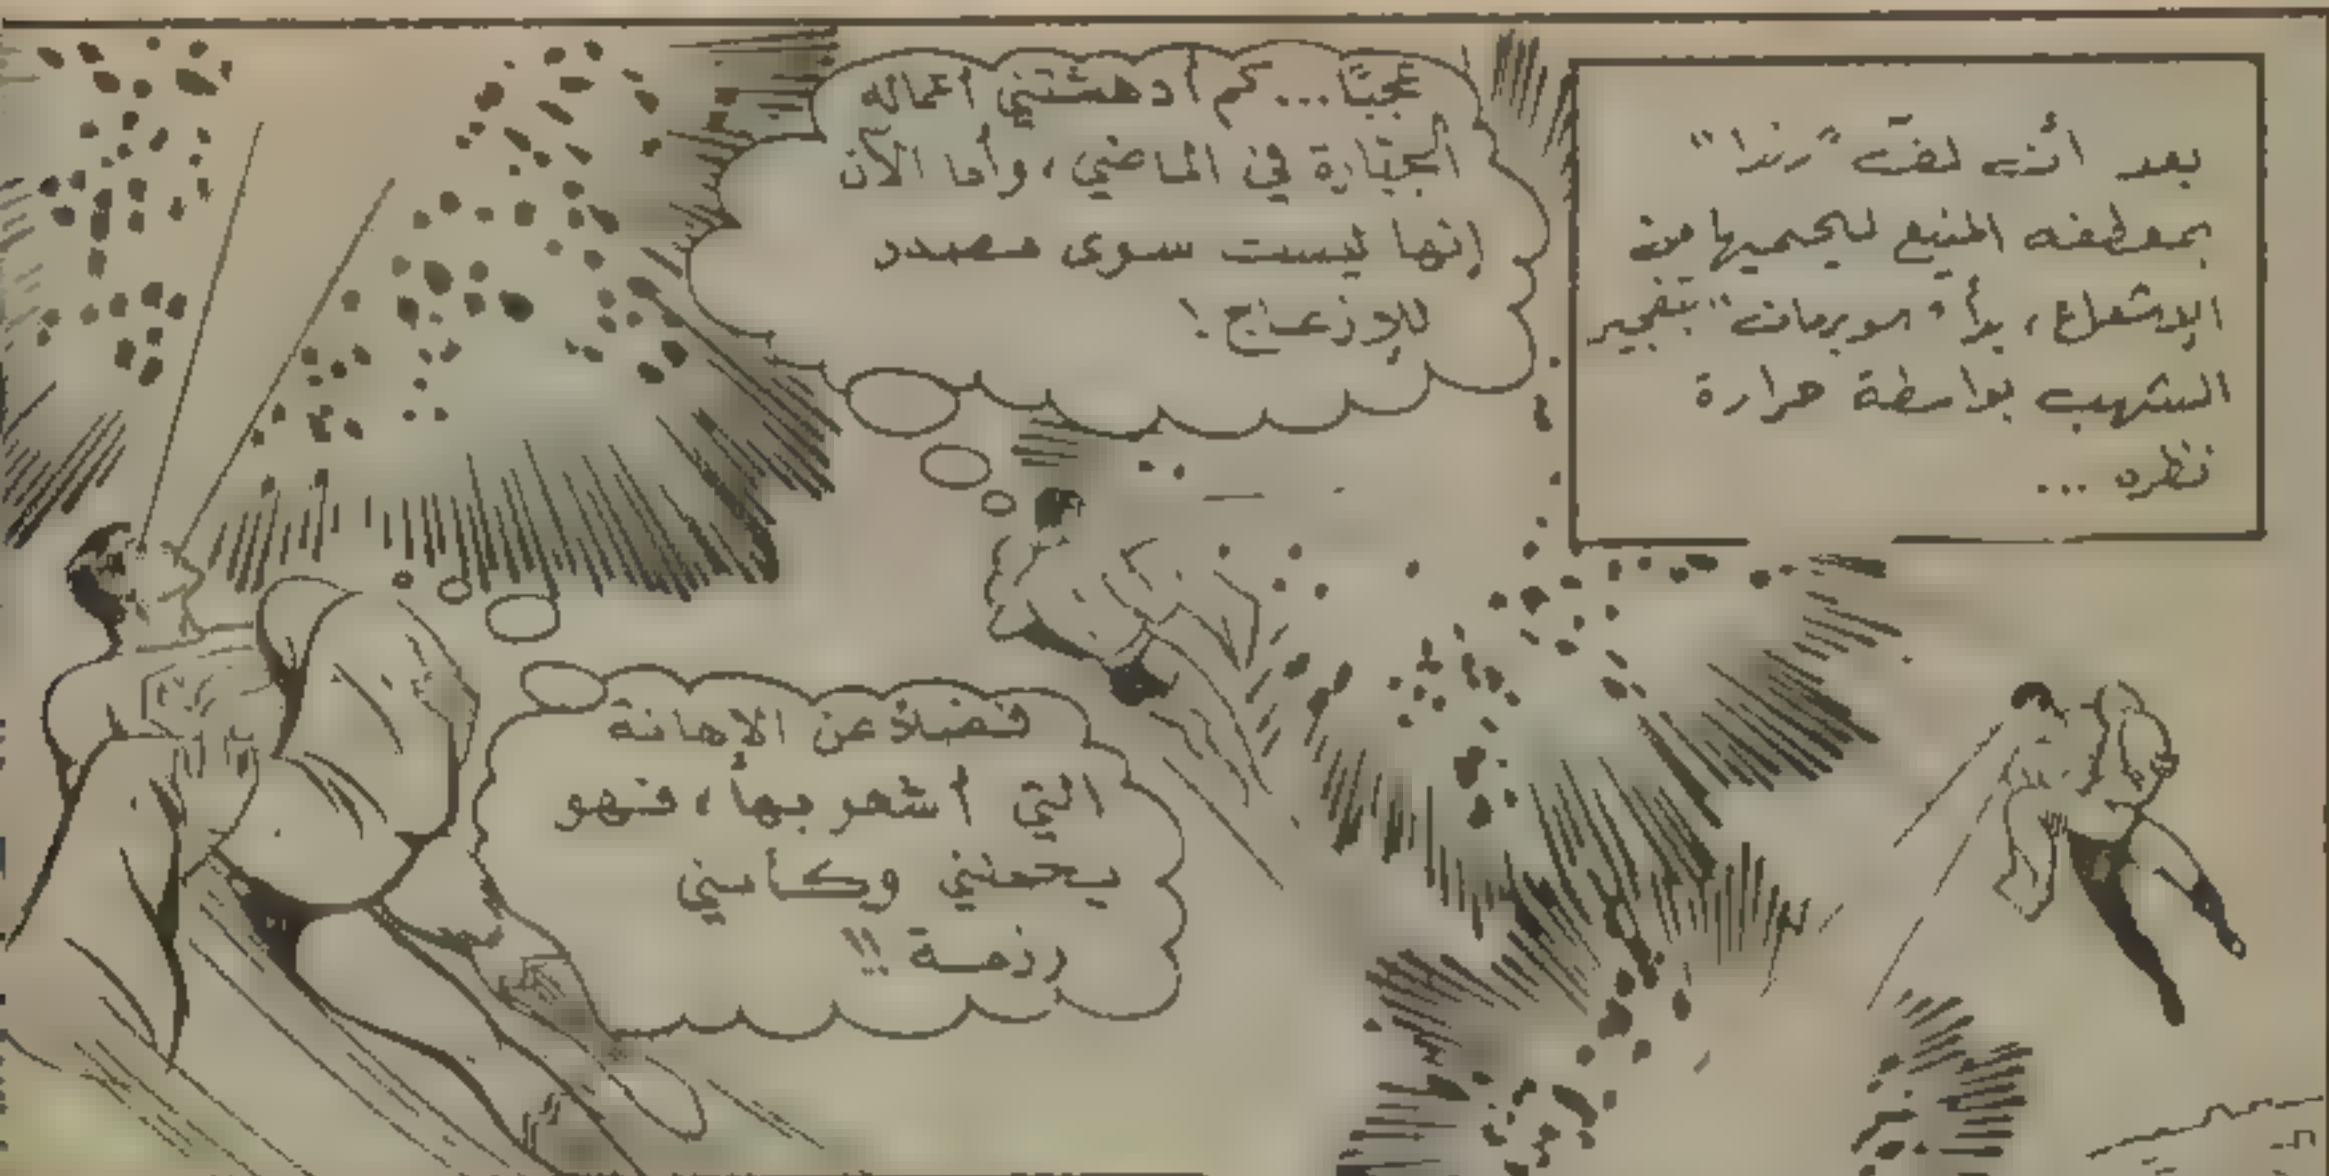 بعد أن لفّ "رندا"
بمعطفه المنيع ليحميها من
الإشعاع، بدأ "سوبرمان" بتفجير
الشهب بواسطة حرارة
نظره ...
عجبًا... كم أدهشتني أعماله
الجبّارة في الماضي، وأما الآن
إنها ليست سوى مصدر
للإزعاج!
فضلاً عن الإهانة
التي أشعر بها، فهو
يحملني وكأنني
رزمة!!